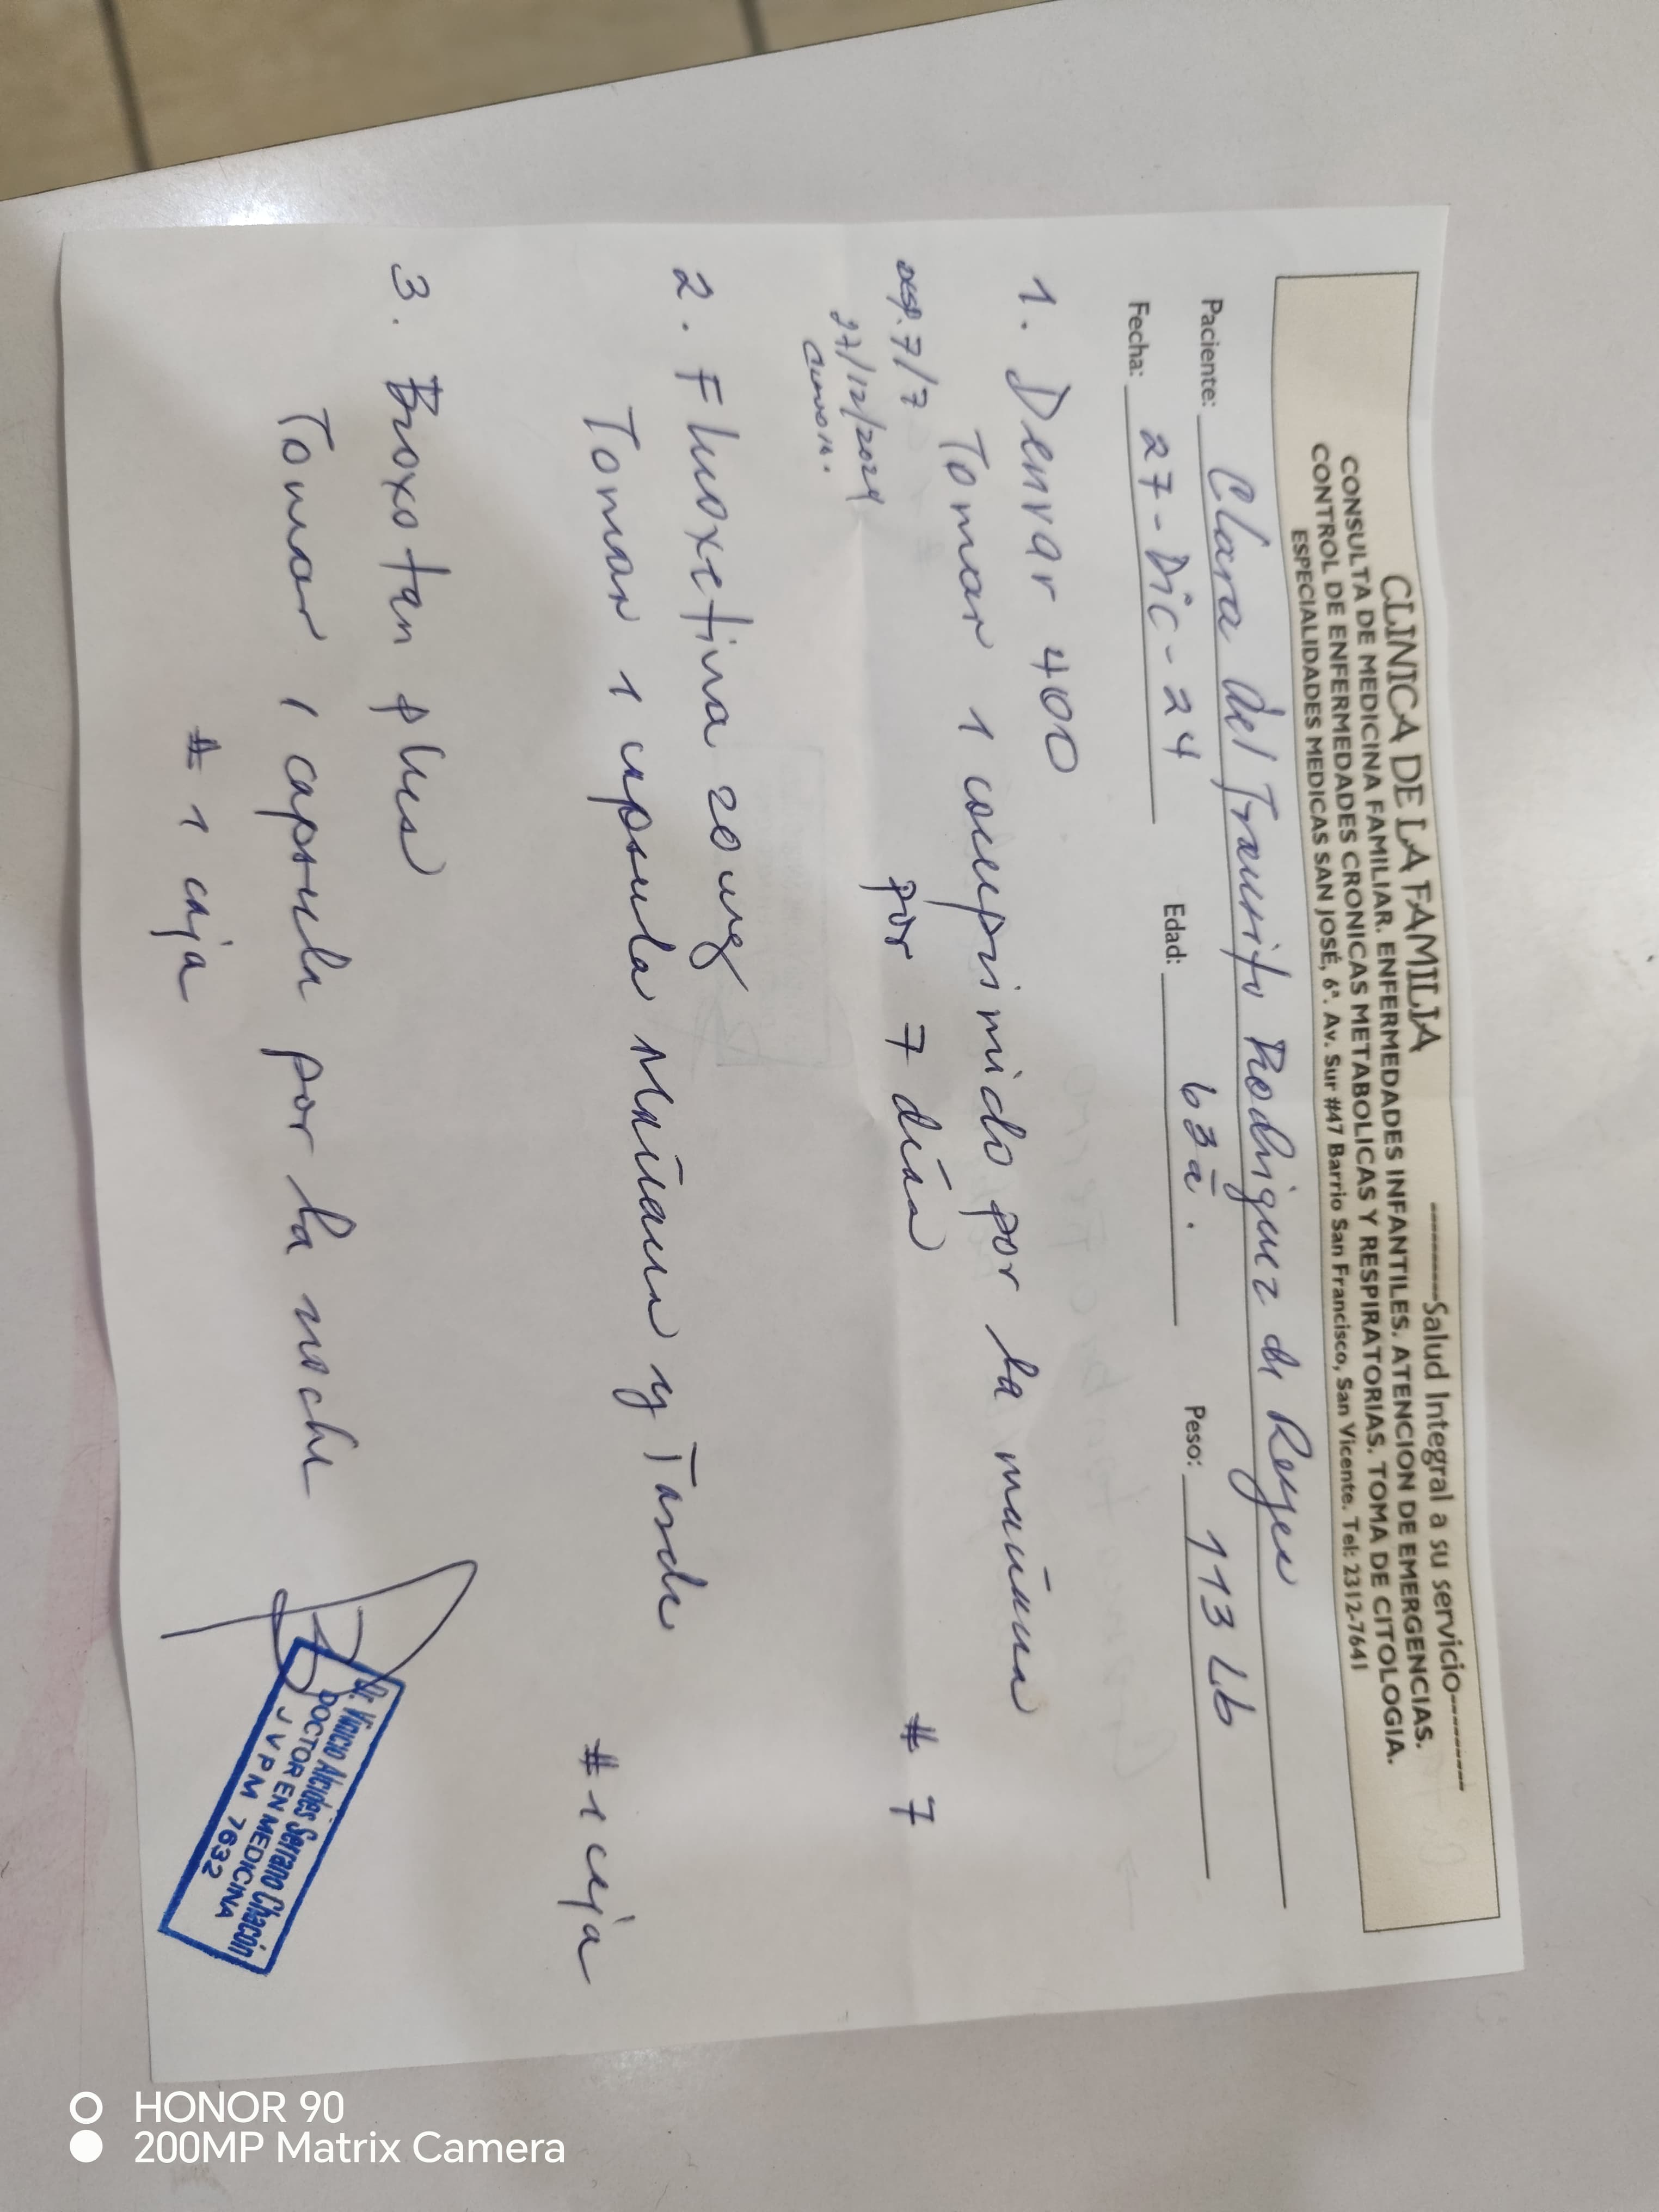 CLINICA DE LA FAMILIA
----------Salud Integral a su servicio----------
CONSULTA DE MEDICINA FAMILIAR. ENFERMEDADES INFANTILES. ATENCION DE EMERGENCIAS.
CONTROL DE ENFERMEDADES CRONICAS METABOLICAS Y RESPIRATORIAS. TOMA DE CITOLOGIA.
ESPECIALIDADES MEDICAS SAN JOSÉ, 6ª. Av. Sur #47 Barrio San Francisco, San Vicente. Tel: 2312-7641
Paciente: Clara del Transito Rodriguez de Reyes
Fecha: 27-Dic-24 Edad: 63a. Peso: 113 Lb
1. Denvar 400
Tomar 1 comprimido por la mañana
Desp. 7/7 por 7 días # 7
27/12/2024
2. Fluoxetina 20 mg
Tomar 1 capsula mañana y Tarde # 1 caja
3. Broxotan plus
Tomar 1 capsula por la noche
# 1 caja
Dr. Vinicio Alcides Serrano Chacón
DOCTOR EN MEDICINA
J V P M 7632
HONOR 90
200MP Matrix Camera